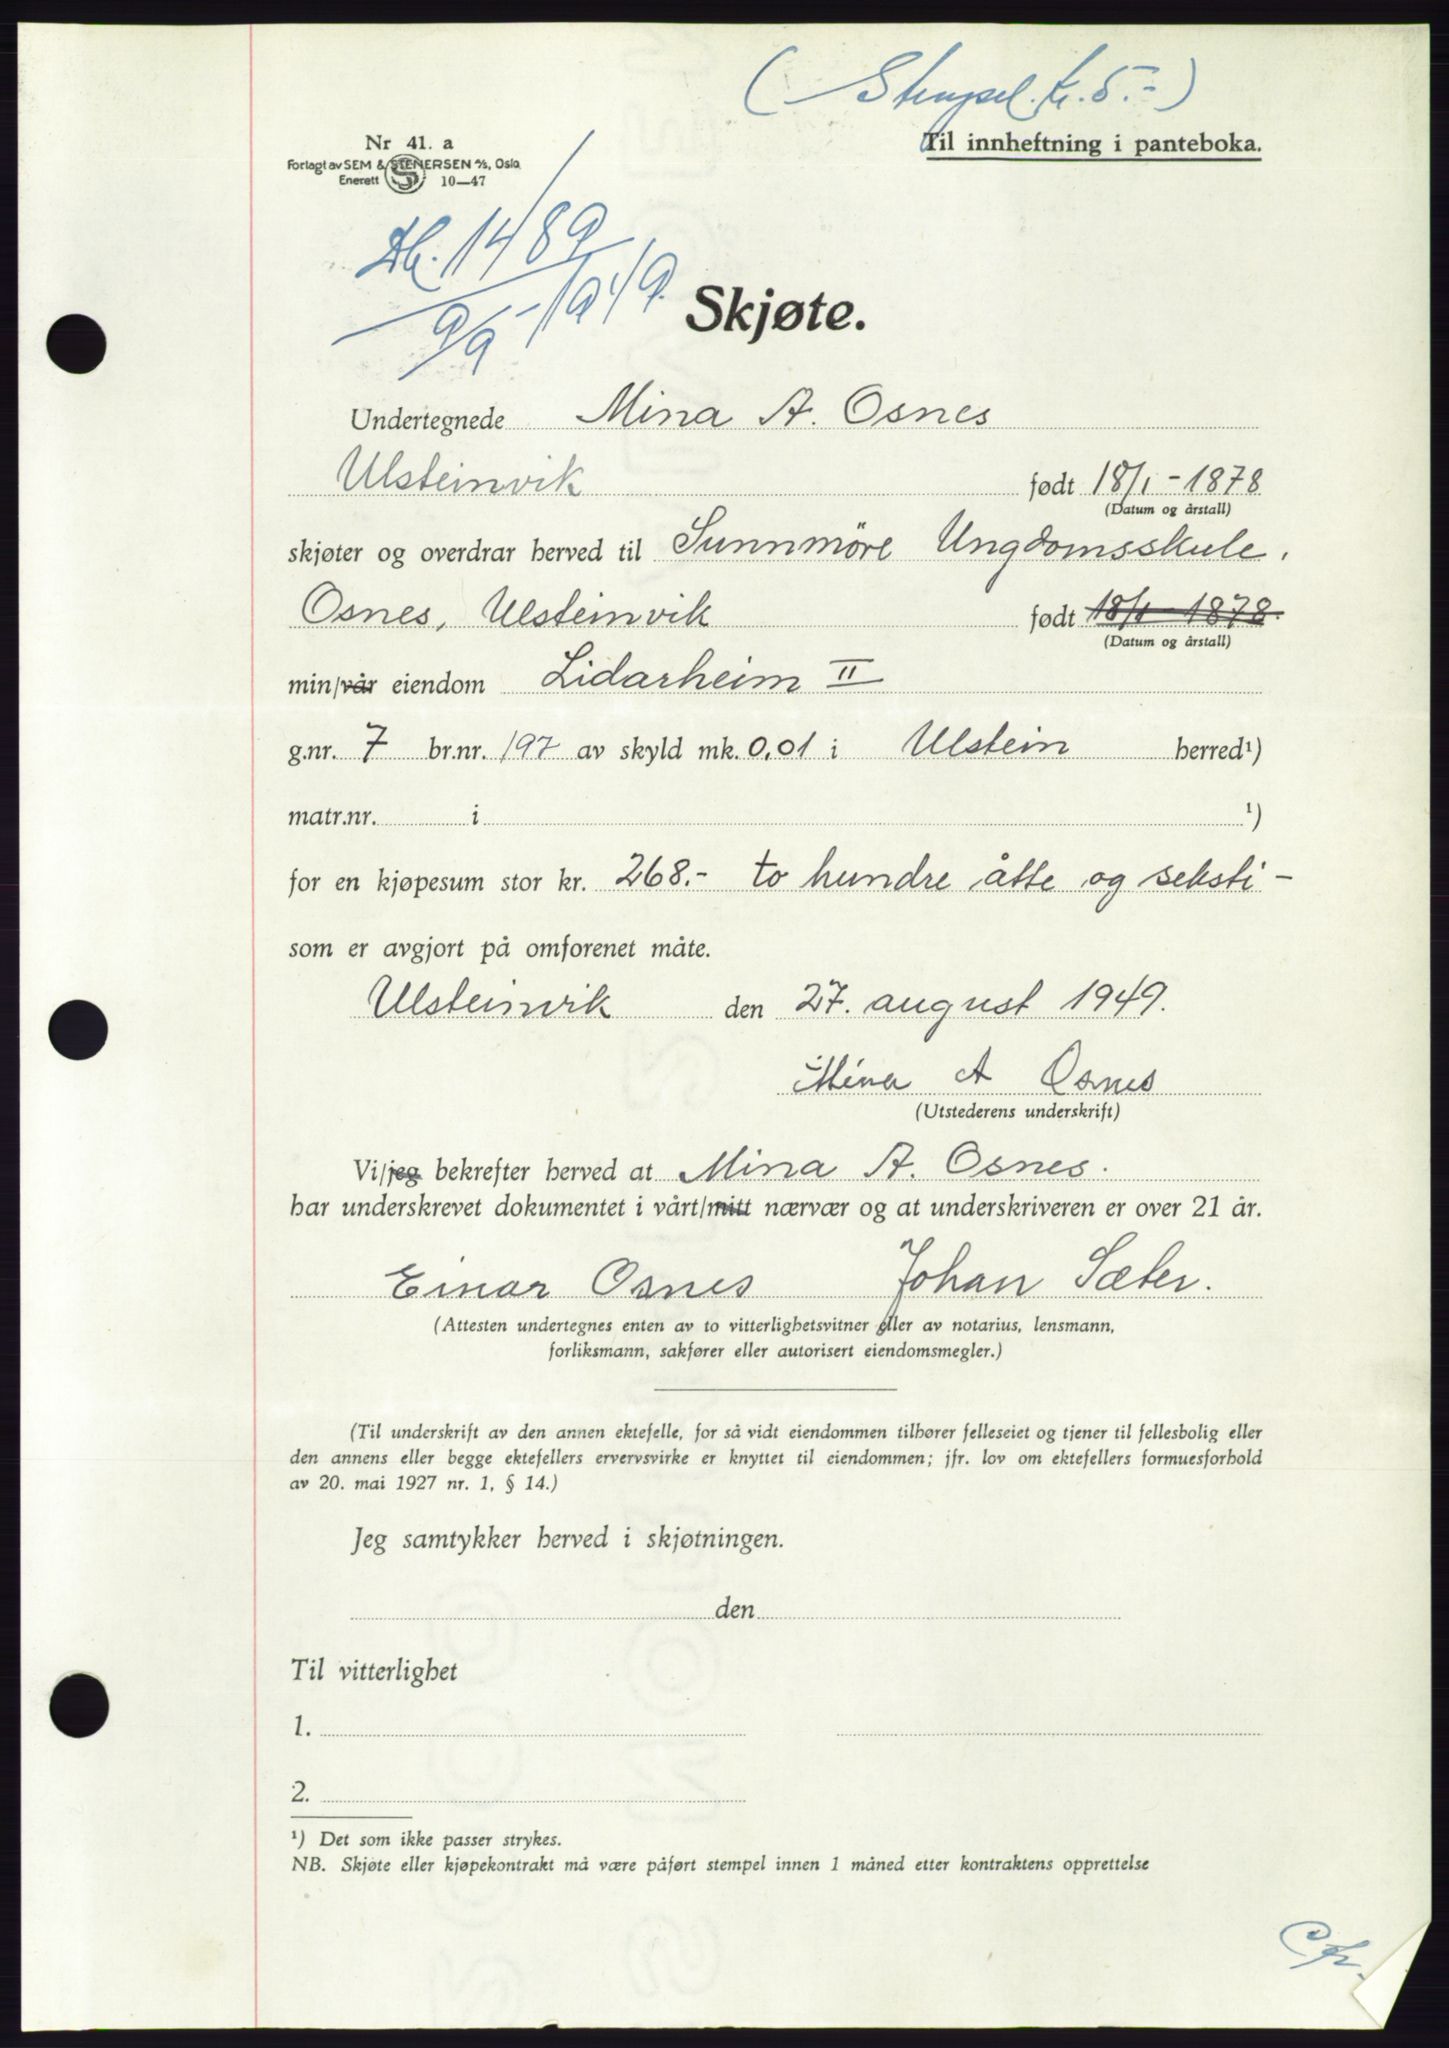 (Stempel. kr. 5.-)
Nr 41. a
Til innheftning i panteboka.
Forlagt av SEM & STENERSEN A/S, Oslo
Enerett 10—47
Db. 1489
9/9 - 1949.
Skjøte.
Undertegnede Mina A. Osnes
Ulsteinvik født 18/1 - 1878
(Datum og årstall)
skjøter og overdrar herved til Sunnmöre Ungdomsskule,
Osnes, Ulsteinvik født 18/1 - 1878.
(Datum og årstall)
min/vår eiendom Lidarheim II
g.nr. 7 br.nr. 197 av skyld mk. 0,01 i Ulstein herred¹)
matr.nr. i ¹)
for en kjøpesum stor kr. 268.- to hundre åtte og seksti -
som er avgjort på omforenet måte.
Ulsteinvik den 27. august 1949.
Mina A Osnes
(Utstederens underskrift)
Vi/jeg bekrefter herved at Mina A. Osnes.
har underskrevet dokumentet i vårt/mitt nærvær og at underskriveren er over 21 år.
Einar Osnes Johan Sæter.
(Attesten undertegnes enten av to vitterlighetsvitner eller av notarius, lensmann,
forliksmann, sakfører eller autorisert eiendomsmegler.)
(Til underskrift av den annen ektefelle, for så vidt eiendommen tilhører felleseiet og tjener til fellesbolig eller
den annens eller begge ektefellers ervervsvirke er knyttet til eiendommen; jfr. lov om ektefellers formuesforhold
av 20. mai 1927 nr. 1, § 14.)
Jeg samtykker herved i skjøtningen.
den
Til vitterlighet
1.
2.
¹) Det som ikke passer strykes.
NB. Skjøte eller kjøpekontrakt må være påført stempel innen 1 måned etter kontraktens opprettelse